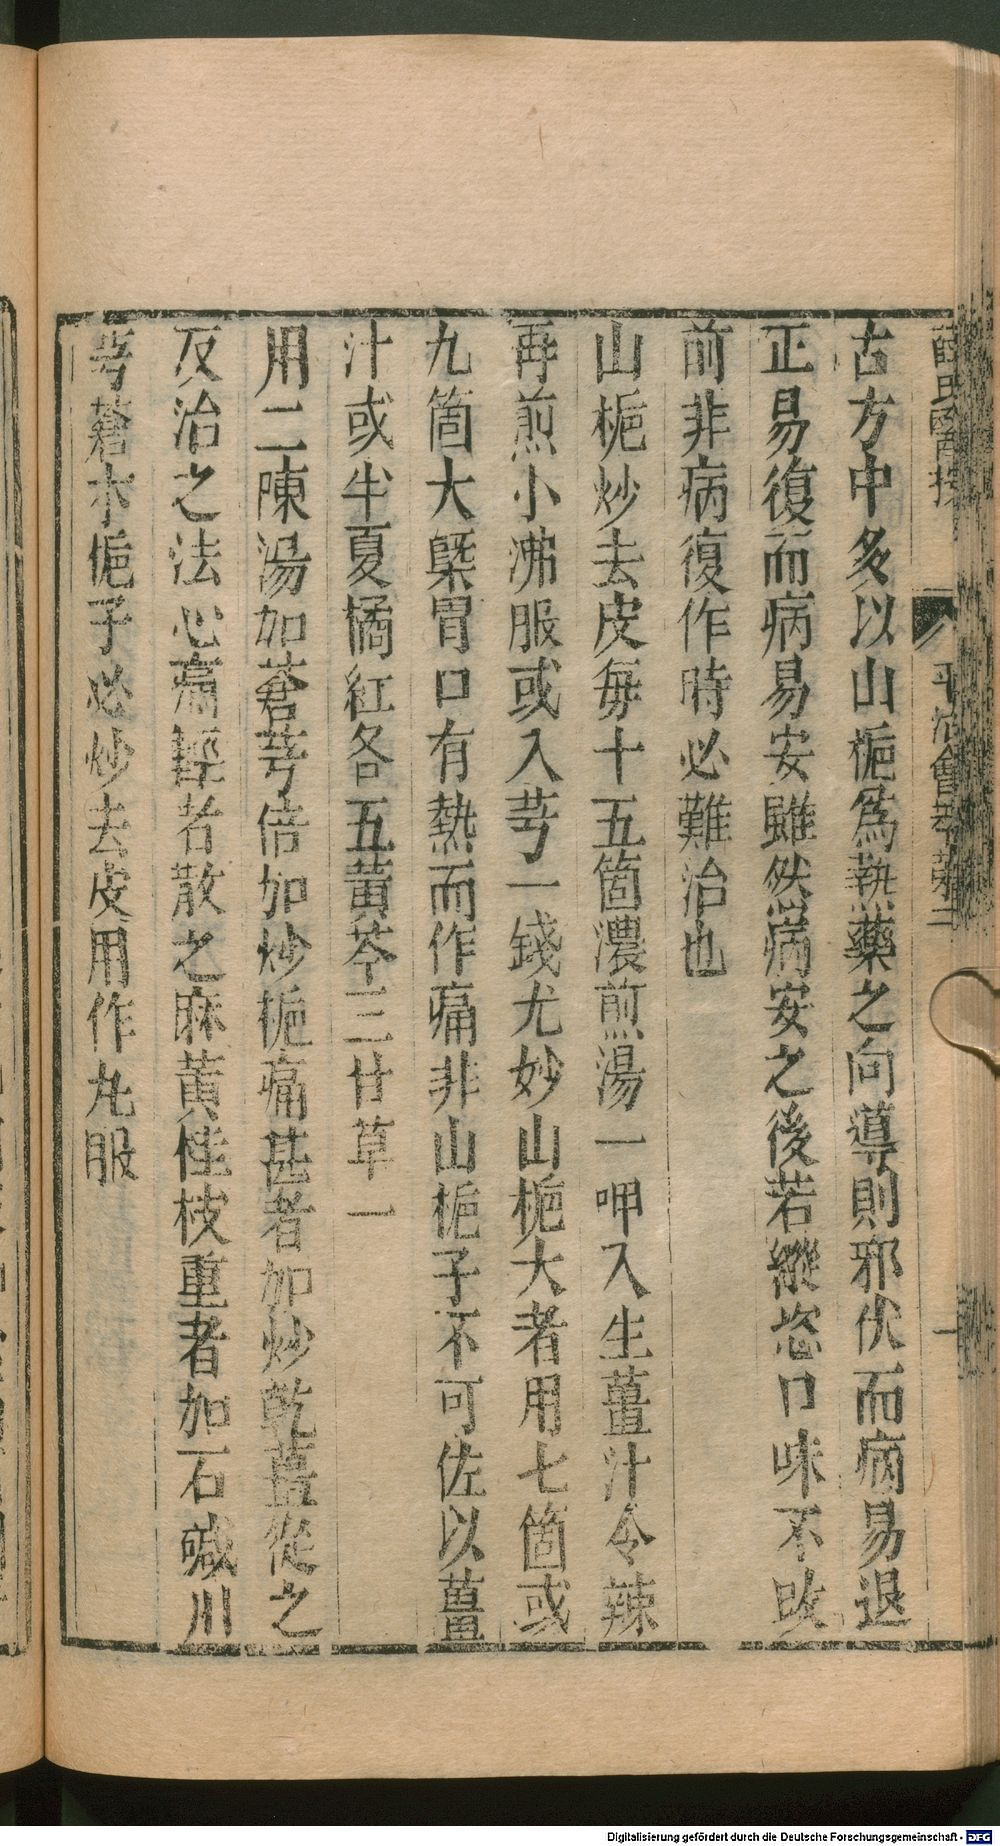 薛氏醫按 平治會萃卷二 一
古方中多以山梔爲熱藥之向導則邪伏而病易退
正易復而病易安雖然病安之後若縱恣口味不改
前非病復作時必難治也
山梔炒去皮每十五箇濃煎湯一呷入生薑汁令辣
再煎小沸服或入芎一錢尤妙山梔大者用七箇或
九箇大槩胃口有熱而作痛非山梔子不可佐以薑
汁或半夏橘紅各五黃芩三甘草一
用二陳湯加蒼芎倍加炒梔痛甚者加炒乾薑從之
反治之法心痛輕者散之麻黃桂枝重者加石鹹川
芎蒼朮梔子必炒去皮用作丸服
Digitalisierung gefördert durch die Deutsche Forschungsgemeinschaft - DFG